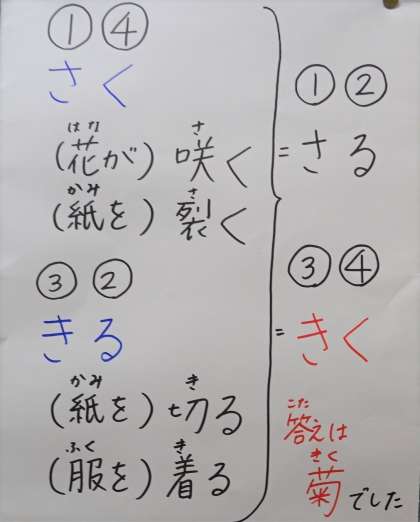 ①④
さく
(花が) 咲く
はな さ
(紙を) 裂く
かみ さ
③②
きる
(紙を) 切る
かみ き
(服を) 着る
ふく き
①②
=さる
③④
=きく
答えは
こた
菊でした
きく